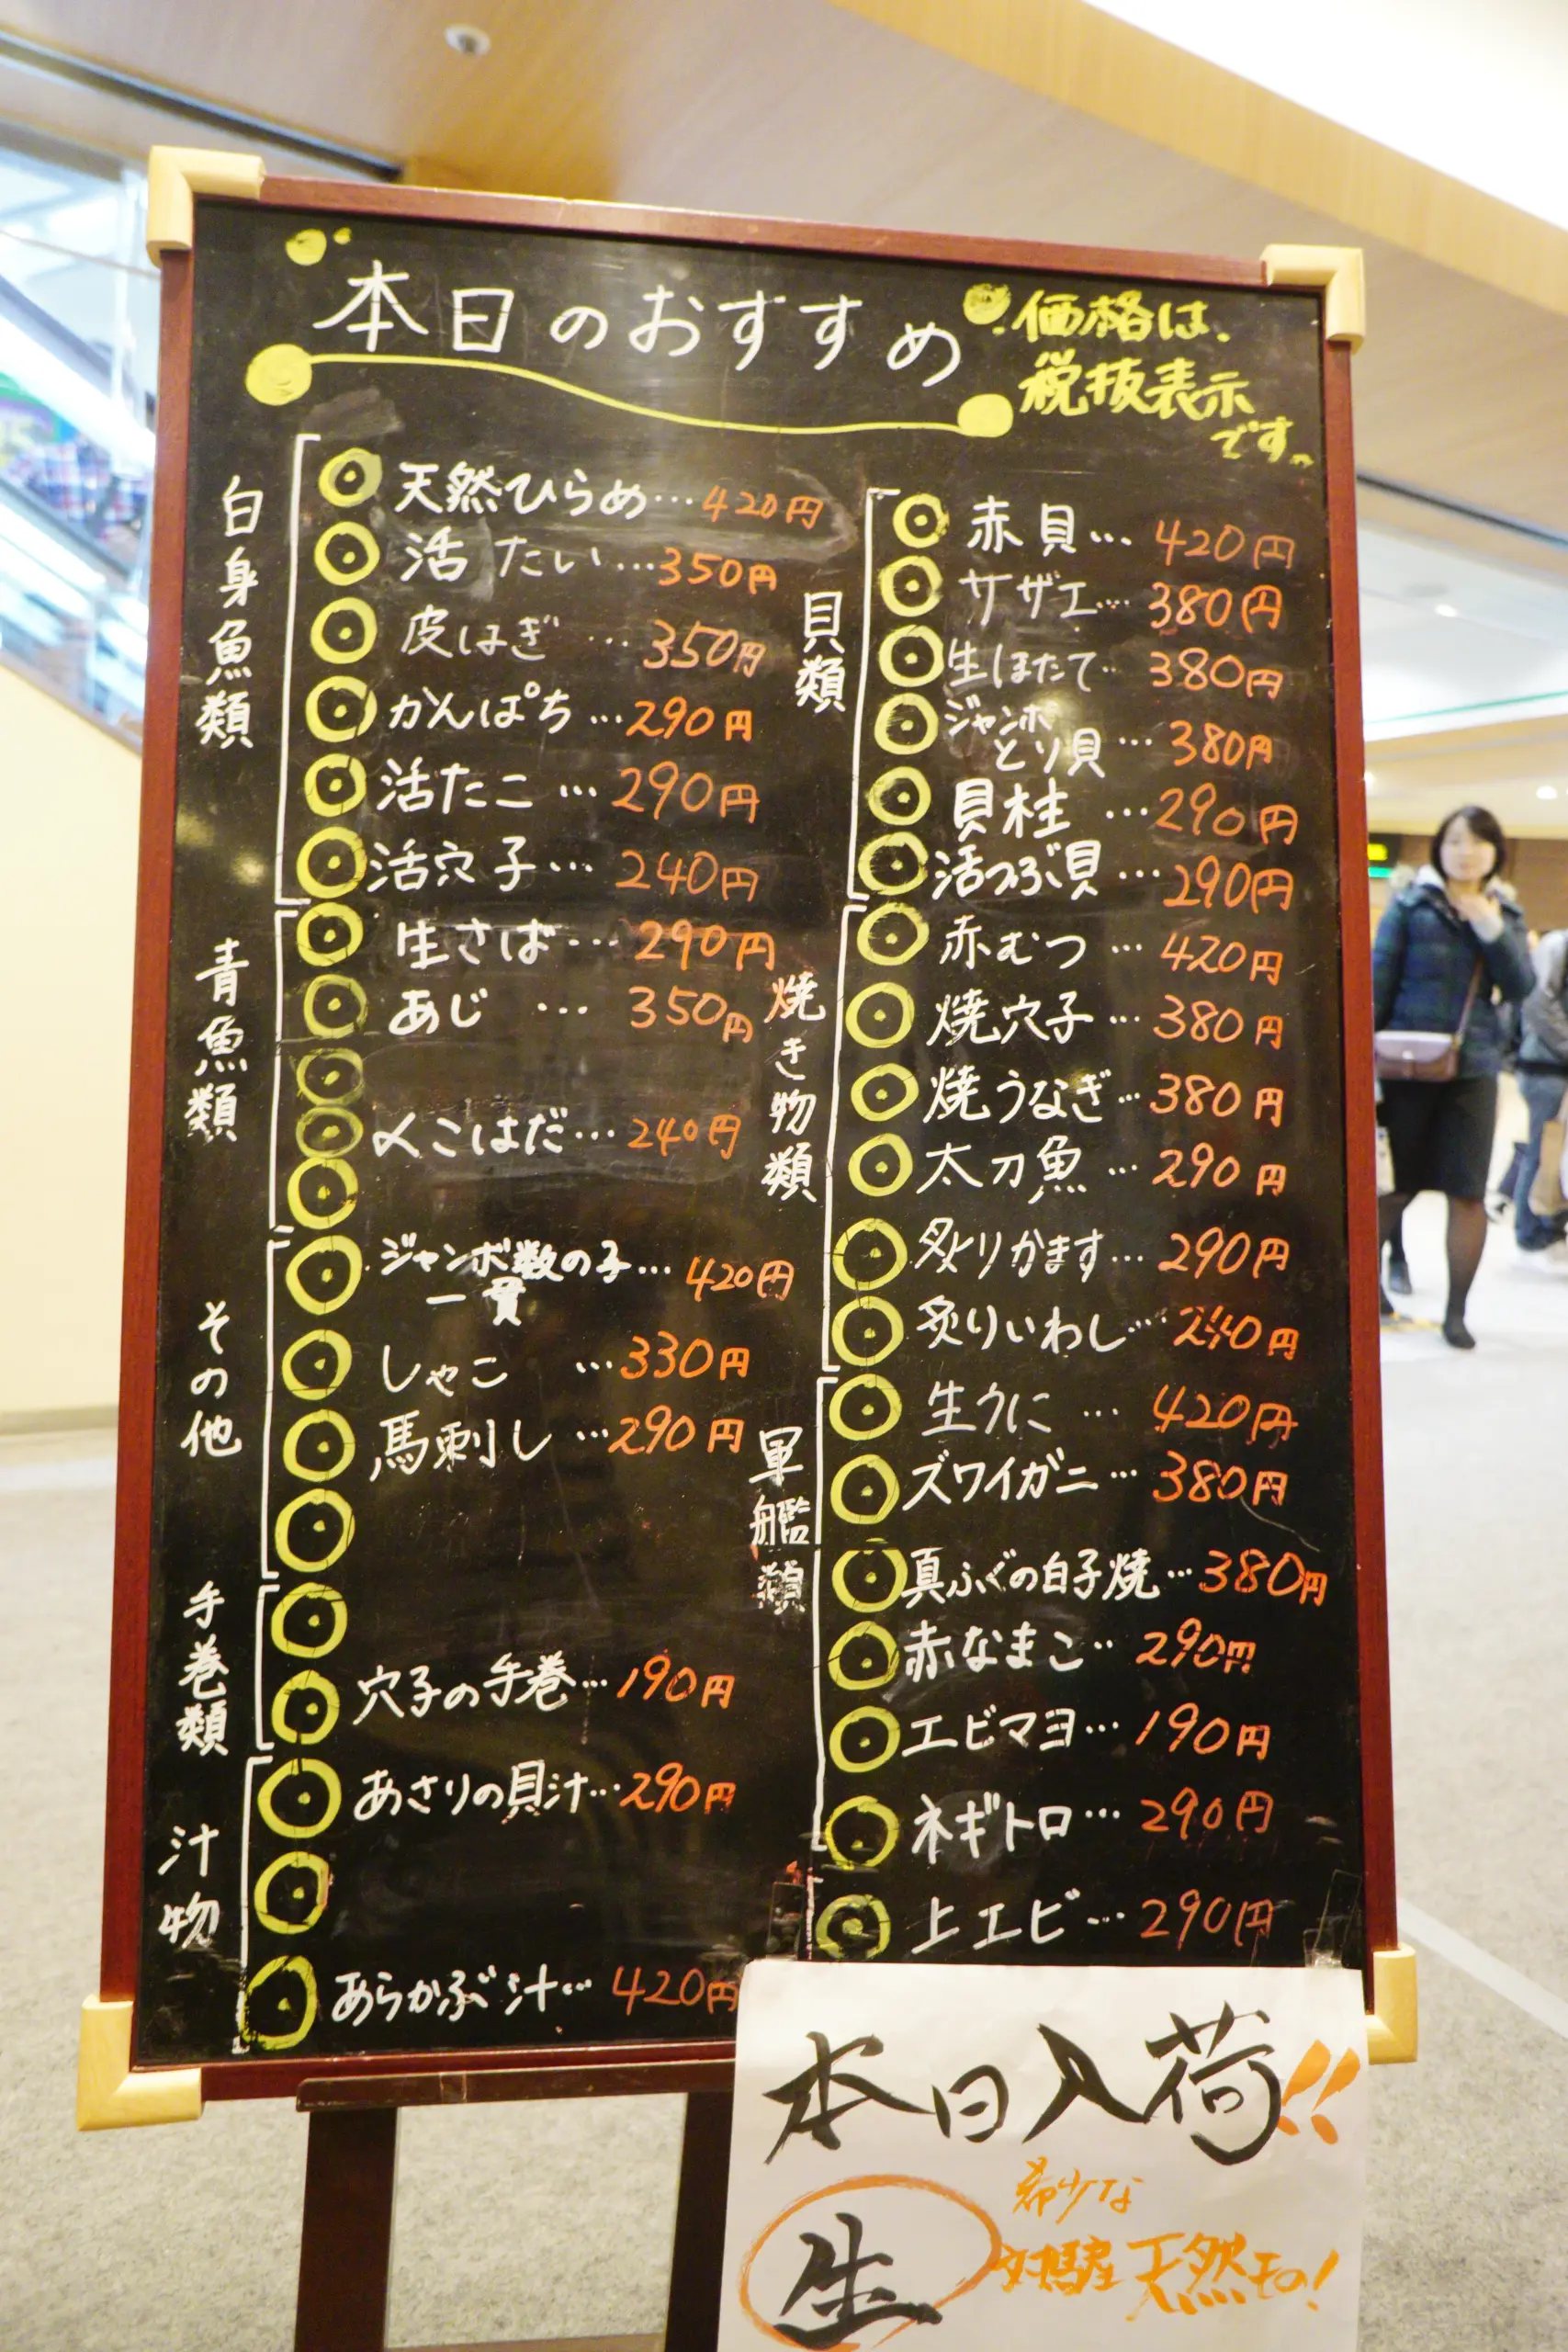 本日のおすすめ
価格は、
税抜表示
です。
白身魚類
天然ひらめ…420円
活たい…350円
皮はぎ…350円
かんぱち…290円
活たこ…290円
活穴子…240円
青魚類
生さば…290円
あじ…350円
〆こはだ…240円
その他
ジャンボ数の子…420円
一貫
しゃこ…330円
馬刺し…290円
手巻類
穴子の手巻…190円
汁物
あさりの貝汁…290円
あらかぶ汁…420円
貝類
赤貝…420円
サザエ…380円
生ほたて…380円
ジャンボ
とり貝…380円
貝柱…290円
活つぶ貝…290円
焼き物類
赤むつ…420円
焼穴子…380円
焼うなぎ…380円
太刀魚…290円
炙りかます…290円
炙りいわし…240円
軍艦類
生うに…420円
ズワイガニ…380円
真ふぐの白子焼…380円
赤なまこ…290円
エビマヨ…190円
ネギトロ…290円
上エビ…290円
本日入荷!!
希少な
生
対馬産天然もの!